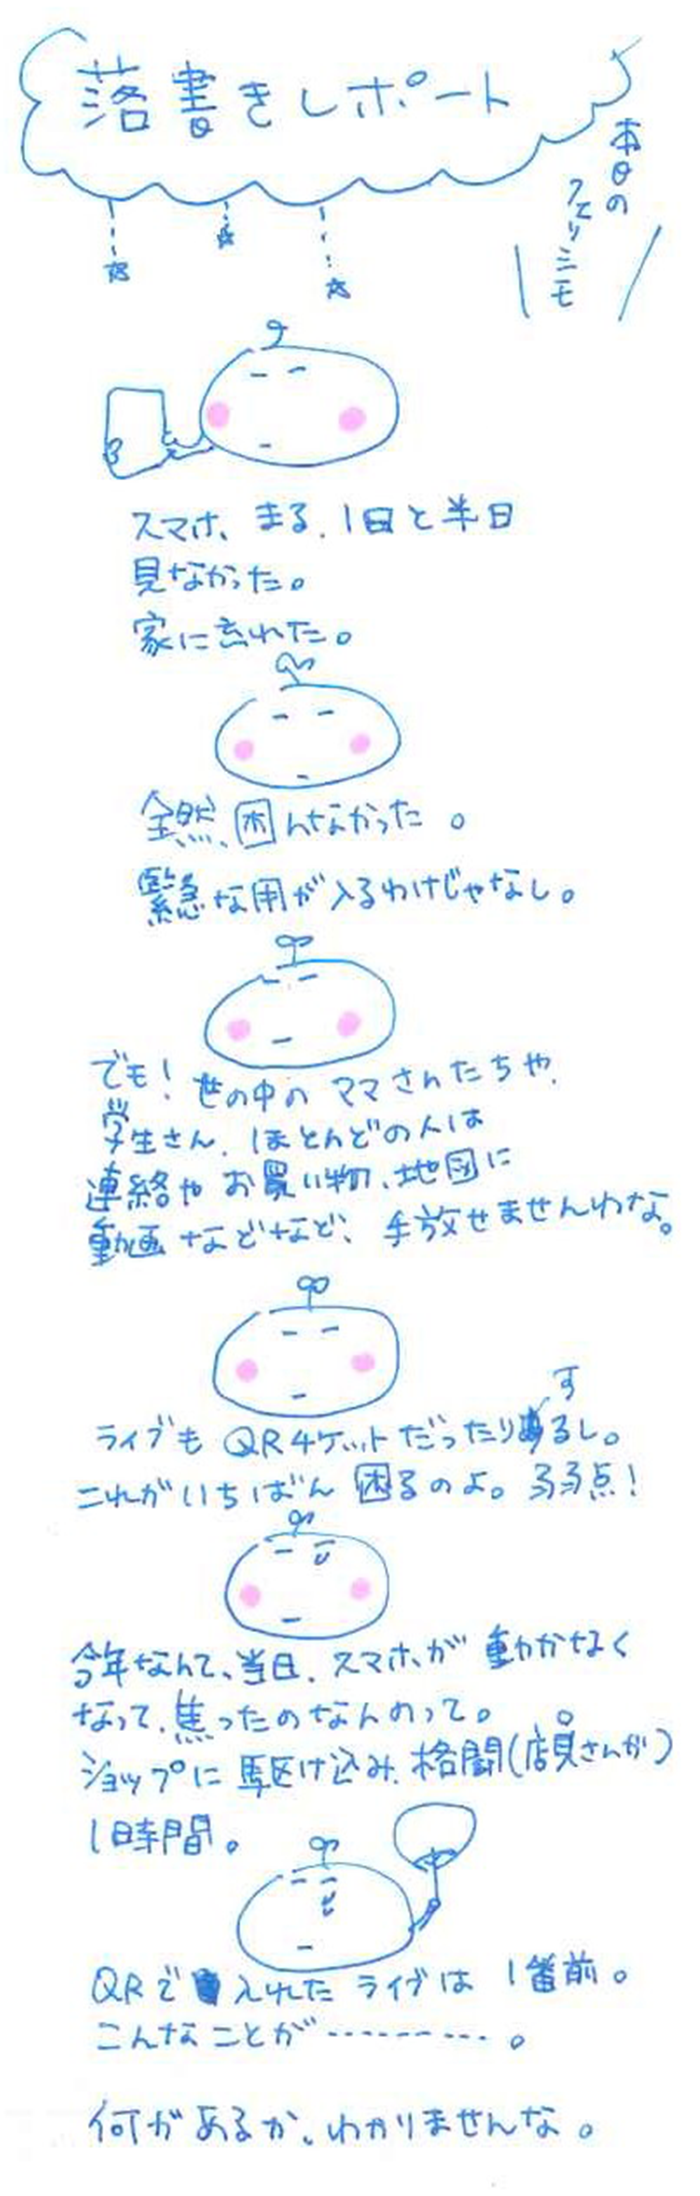 落書きレポート
本日の
フェリシモ
スマホ、まる、1日と半日
見なかった。
家に忘れた。
全然、困んなかった。
緊急な用が入るわけじゃなし。
でも！世の中のママさんたちや、
学生さん、ほとんどの人は
連絡やお買い物、地図に
動画などなど、手放せませんわな。
ライブもQRチケットだったりするし。
これがいちばん困るのよ。弱点！
今年なんて、当日、スマホが動かなく
なって、焦ったのなんのって。
ショップに駆け込み、格闘(店員さんが)
1時間。
QRで入れたライブは1番前。
こんなことが………。
何があるか、わかりませんな。